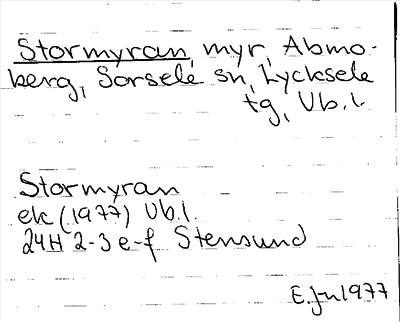 Stormyran, myr, Abmo-
berg, Sorsele sn, Lycksele
tg, Vb.l.
Stormyran
ek (1977) Vb.l.
24H 2-3 e-f Stensund
E. Jn 1977